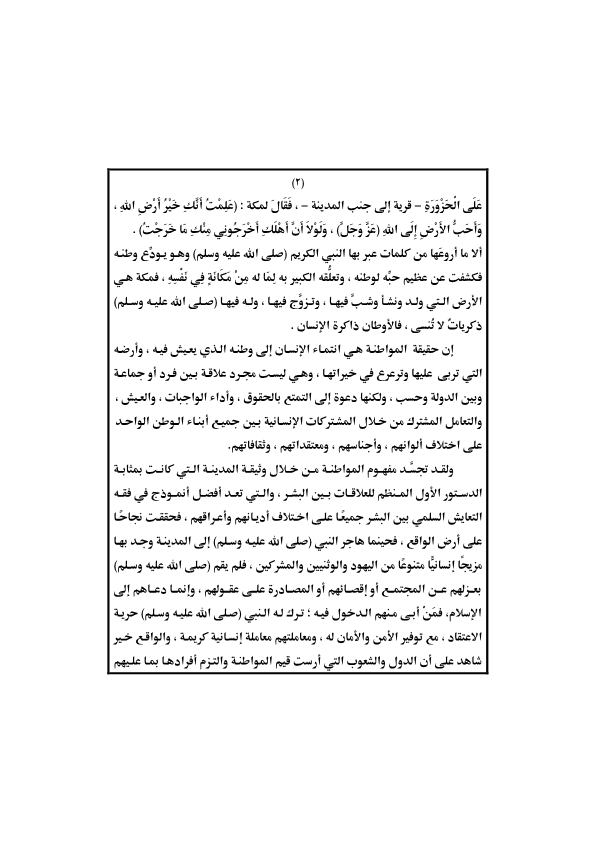 (٢)
عَلَى الْحَزْوَرَةِ – قرية إلى جنب المدينة - ، فَقَالَ لمكة : (عَلِمْتُ أَنَّكِ خَيْرُ أَرْضِ اللهِ ،
وَأَحَبُّ الأَرْضِ إِلَى اللهِ (عَزَّ وَجَلَّ) ، وَلَوْلاَ أَنَّ أَهْلَكِ أَخْرَجُونِي مِنْكِ مَا خَرَجْتُ) .
ألا ما أروعَها من كلمات عبر بها النبي الكريم (صلى الله عليه وسلم) وهـو يـودِّع وطنـه
فكشفت عن عظيم حبِّه لوطنه ، وتعلُّقه الكبير به لِمَا له مِنْ مَكَانَةٍ فِي نَفْسِهِ ، فمكة هـي
الأرض التـي ولـد ونشأ وشـبَّ فيهـا ، وتـزوَّج فيهـا ، ولـه فيهـا (صلى الله عليه وسلم)
ذكرياتٌ لا تُنسى ، فالأوطان ذاكرة الإنسان .
إن حقيقة المواطنة هـي انتمـاء الإنسان إلى وطنـه الـذي يعـيش فيـه ، وأرضـه
التي تربى عليها وترعرع في خيراتهـا ، وهـي ليست مجـرد علاقـة بـين فـرد أو جماعـة
وبين الدولة وحسب ، ولكنهـا دعوة إلى التمتع بالحقوق ، وأداء الواجبات ، والعيش ،
والتعامل المشترك من خـلال المشتركات الإنسانية بـين جميـع أبنـاء الـوطن الواحـد
على اختلاف ألوانهم ، وأجناسهم ، ومعتقداتهم ، وثقافاتهم.
ولقـد تجسَّـد مفهـوم المواطنـة مـن خـلال وثيقـة المدينـة التـي كانـت بمثابـة
الدستور الأول المـنظم للعلاقـات بـين البشـر ، والـتي تعـد أفضـل أنمـوذج في فقـه
التعايش السلمي بين البشر جميعًا على اخـتلاف أديـانهم وأعـراقهم ، فحققـت نجاحًـا
على أرض الواقع ، فحينما هاجر النبي (صلى الله عليه وسلم) إلى المدينـة وجـد بهـا
مزيجًا إنسانيًّا متنوعًا من اليهود والوثنيين والمشركين ، فلم يقم (صلى الله عليه وسلم)
بعـزلهم عـن المجتمـع أو إقصـائهم أو المصـادرة علـى عقـولهم ، وإنمـا دعـاهم إلى
الإسلام، فمَنْ أبى منهم الدخول فيه ؛ تـرك لـه الـنبي (صلى الله عليه وسلم) حريـة
الاعتقاد ، مع توفير الأمن والأمان له ، ومعاملتهم معاملة إنسانية كريمـة ، والواقـع خـير
شاهد على أن الدول والشعوب التي أرست قيم المواطنة والتـزم أفرادهـا بمـا علـيهم